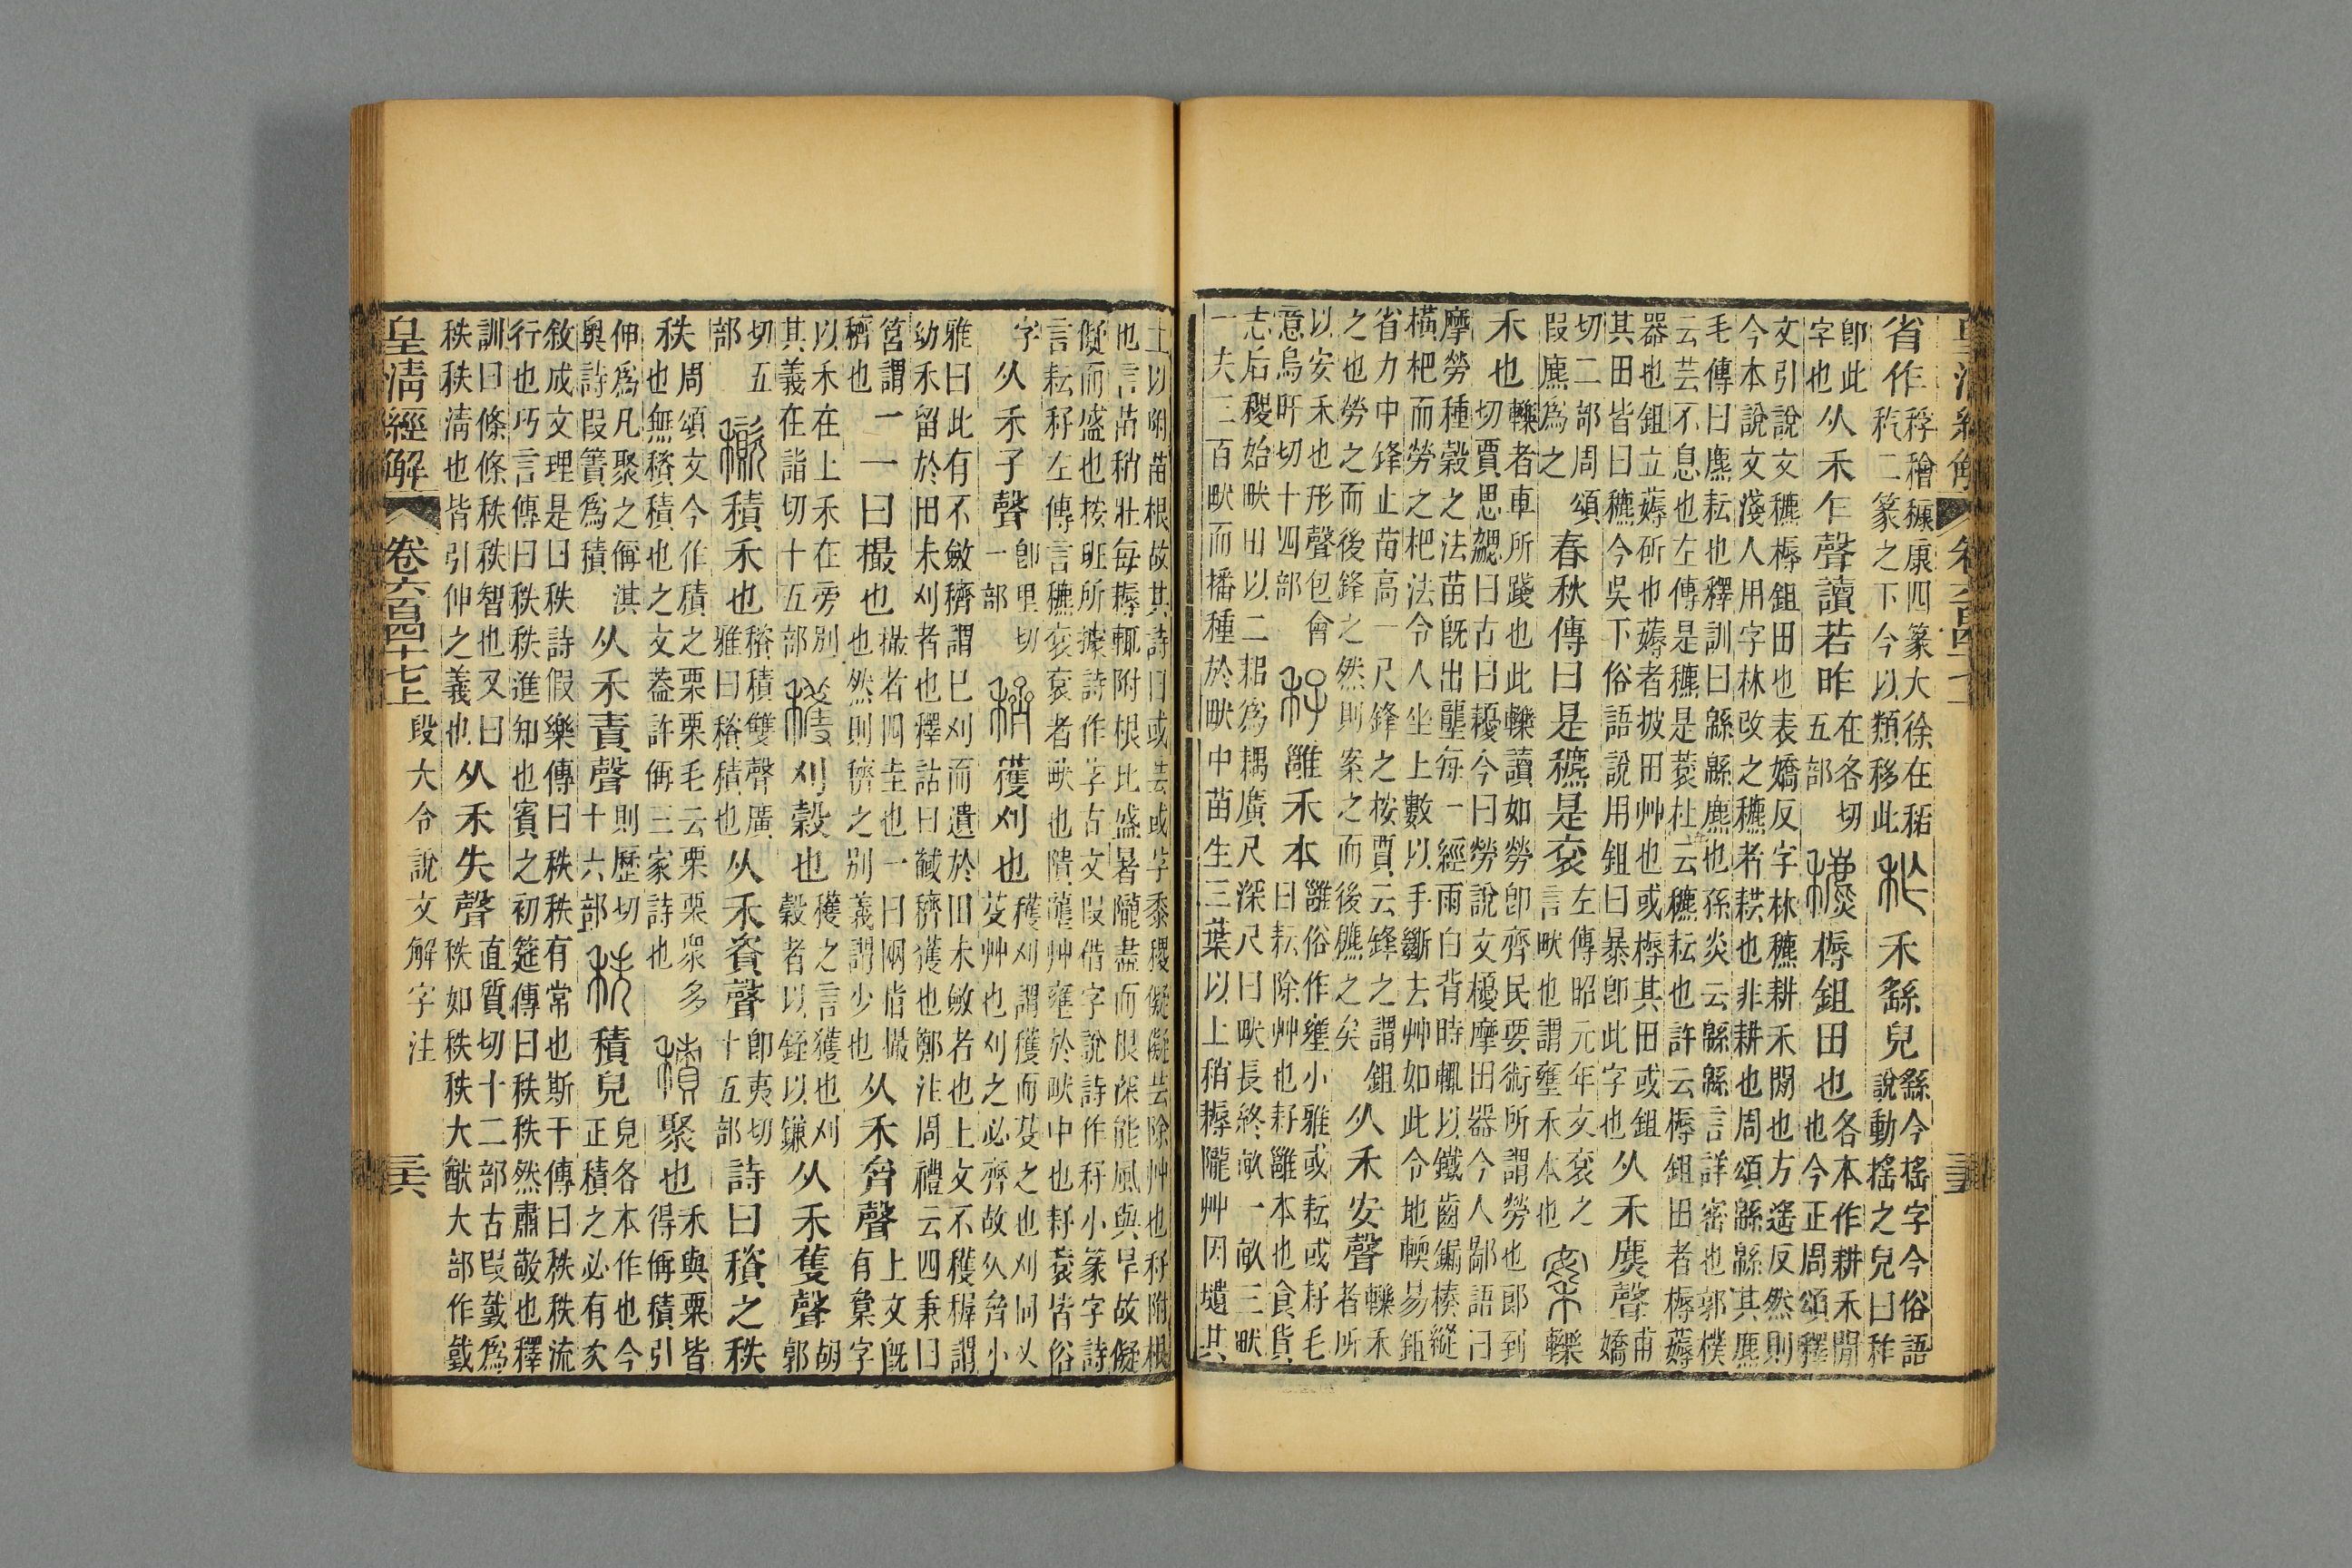 省作稃𥢶穅康四篆大徐在秳䄧二篆之下今以類移此秨禾䌛皃䌛今搖字今俗語說動搖之皃曰秨
卽此字也从禾乍聲讀若昨在各切五部穮槈鉏田也各本作耕禾閒也今正周頌釋
文引說文穮槈鉏田也表嬌反字林穮耕禾閒也方遙反然則今本說文淺人用字林改之穮者也非耕也周頌緜緜其麃
毛傳曰麃耘也釋訓曰緜緜麃也孫炎云緜緜言詳密也郭樸云芸不息也左傳是穮是蔉杜云穮耘也許云槈鉏田者槈薅
器也鉏立薅斫也薅者披田艸也或槈其田或鉏其田皆曰穮今吳下俗語說用鉏曰暴卽此字也从禾麃聲甫嬌
切二部周頌叚麃爲之春秋傳曰是穮是袞左傳昭元年文袞之言畎也謂壅禾本也案轢
禾也轢者車所踐也此轢讀如勞卽齊民要術所謂勞也郎到切賈思勰曰古曰耰今曰勞說文櫌摩田器今人鄙語曰
摩勞種穀之法苗旣出壟每一經雨白背時輒以鐵齒鍋榛縱橫杷而勞之杷法令人坐上數以手斷去艸如此令地輭易鉏
省力中鋒止苗高一尺鋒之按賈云鋒之謂鉏之也勞之而後鋒之然則案之而後穮之矣从禾安聲轢禾者所
以安禾也形聲包會意烏旰切十四部秄雝禾本雝俗作壅小雅或耘或秄毛曰耘除艸也秄雝本也食貨
志后稷始畎田以二耜爲耦廣尺深尺曰畎長終畝一畝三畎一夫三百畎而播種於畎中苗生三葉以上稍耨隴艸因壝其
皇清經解 卷六百四十七上 三五
土以附苗根故其詩曰或芸或秄黍稷儗儗芸除艸也秄附根也言苗稍壯每耨輒附根比盛暑隴盡而根深能風與旱故儗
儗而盛也按班所據詩作芓古文叚借字說詩作秄小篆字詩言耘秄左傳言穮袞袞者畎也隤壠艸壅於畎中也耔蓘皆俗
字从禾子聲卽里切一部穧穫刈也穫刈謂穫而芟之也刈同乂芟艸也刈之必齊故从齊小
雅曰此有不斂穧謂已刈而遺於田未斂者也上文不穫稺謂幼禾留於田未刈者也釋詁曰馘穧獲也鄭注周禮云四秉曰
筥謂穧也一一曰撮也撮者四圭也一曰兩指撮也然則穧之別義謂少也从禾齊聲上文旣有䆅字
以禾在上禾在旁別其義在詣切十五部穫刈穀也穫之言獲也刈穀者以銍以鎌从禾隻聲胡郭
切五部𥣪積禾也穧積雙聲廣雅曰穧積也从禾資聲卽夷切十五部詩曰𥣪之秩
秩周頌文今作積之栗栗毛云栗栗眾多也無𥣪積也之文葢許偁三家詩也積聚也禾與粟皆得偁積引
伸爲凡聚之偁淇奧詩叚簀爲積从禾責聲則歷切十六部秩積皃皃各本作也今正積之必有次
敘成文理是曰秩詩假樂傳曰秩秩有常也斯干傳曰秩秩流行也巧言傳曰秩秩進知也賓之初筵傳曰秩秩然肅敬也釋
訓曰條條秩秩智也又曰秩秩淸也皆引伸之義也从禾失聲直質切十二部古叚𢧜爲秩如秩秩大猷大部作𢧜
皇清經解 卷六百四十七上 段大令說文解字注 三六